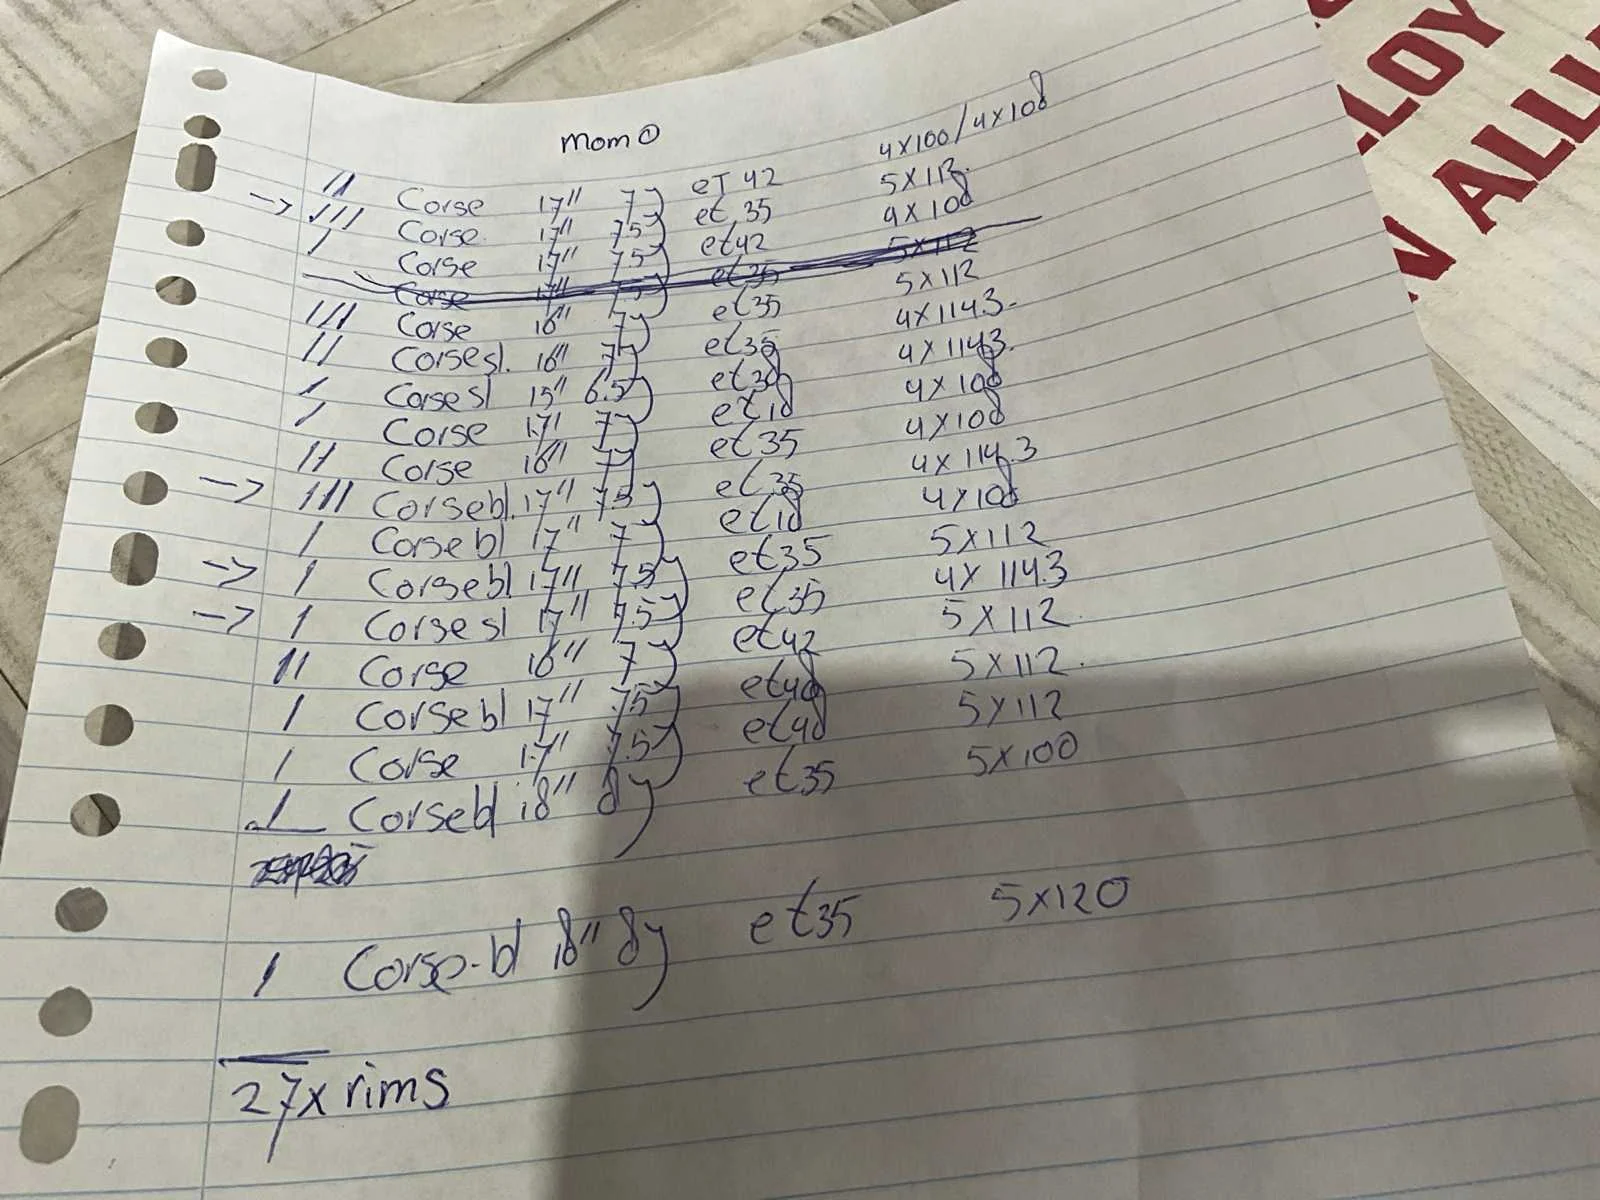 momo
→ || Corse 17" 7J eT 42 4x100/4x108
||| Corse 17" 7.5J et 35 5x112
| Corse 17" 7.5J et42 4x108
Corse 17" 7.5J et35 5x112
||| Corse 16" 7J et35 5x112
|| Corse sl. 16" 7J et35 4x114.3
| Corse sl 15" 6.5J et38 4x114.3
| Corse 17" 7J et18 4x108
|| Corse 16" 7J et35 4x108
→ ||| Corse bl. 17" 7.5J et35 4x114.3
| Corse bl 17" 7J et18 4x108
→ | Corse bl 17" 7.5J et35 5x112
→ | Corse sl 17" 7.5J et35 4x114.3
|| Corse 16" 7J et42 5x112
| Corse bl 17" 7.5J et48 5x112
| Corse 17" 7.5J et48 5x112
| Corse bl 18" 8J et35 5x100
| Corse-bl 18" 8J et35 5x120
27x rims
LLOY
N ALLI